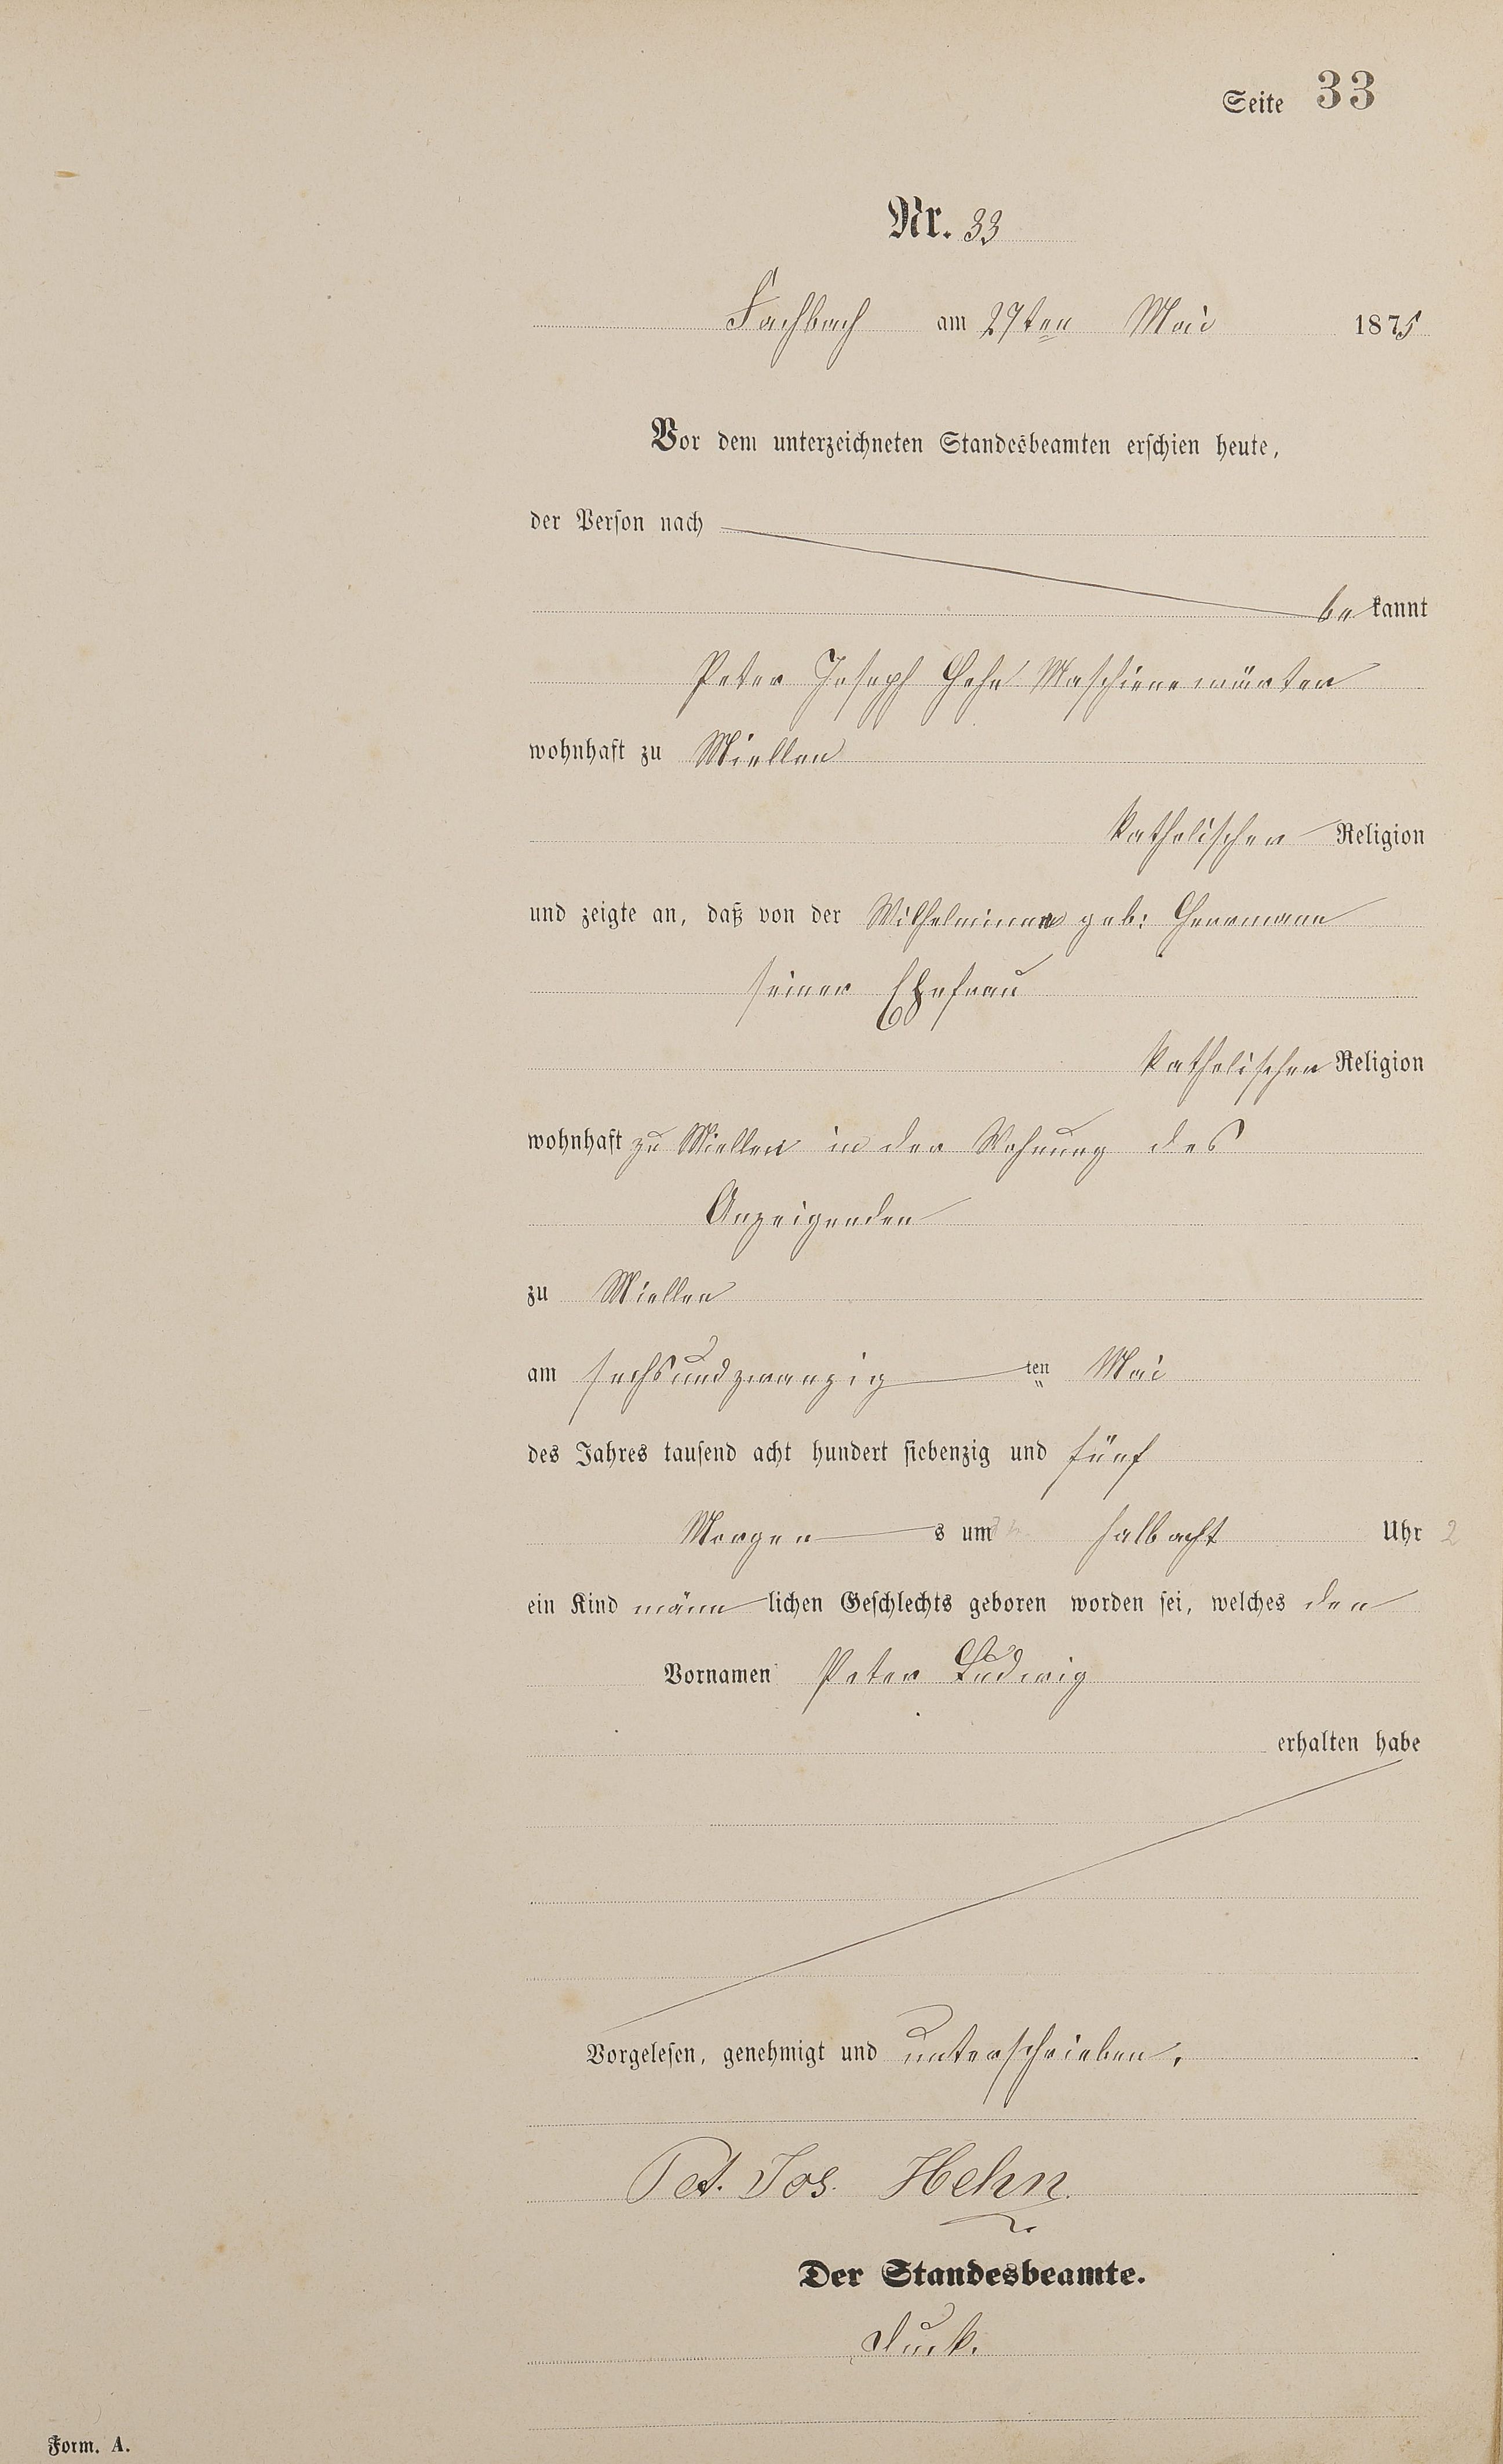 Seite 33
Nr. 33
Fachbach am 27ten Mai 1875
Vor dem unterzeichneten Standesbeamten erschien heute,
der Person nach
bekannt
Peter Joseph Hehn Maschienewärter
wohnhaft zu Miellen
katholischer Religion
und zeigte an, daß von der Wilhelmina geb: Herrmann
seiner Ehefrau
katholischer Religion
wohnhaft zu Miellen in der Wohnung des
Anzeigenden
zu Miellen
am sechsundzwanzig ten Mai
des Jahres tausend acht hundert siebenzig und fünf
Morgens um halbacht Uhr
ein Kind männlichen Geschlechts geboren worden sei, welches den
Vornamen Peter Ludwig
erhalten habe
Vorgelesen, genehmigt und unterschrieben.
Pet. Jos. Hehn.
Der Standesbeamte.
Form. A.